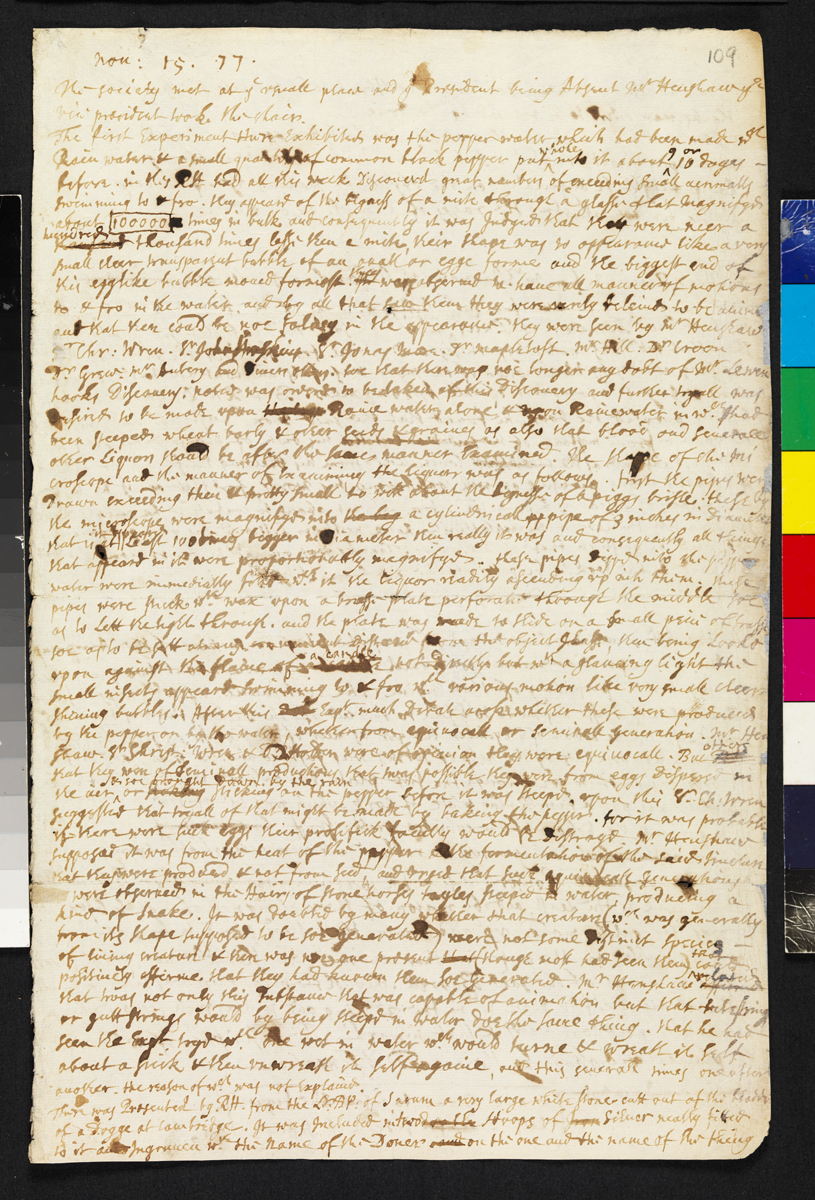 109
nov: 15. 77.
The society met at yᵉ usuall place and yᵉ President being Absent Mʳ Henshaw yᵉ
vice president took the chair.
The first Experiment there Exhibited was the pepper water which had been made wᵗʰ
Rain water & a small quantity of common black pepper put whole into it about 9 or 10 dayes
before. in this RH had all this week Discoverd great numbers of exceeding small animalls
swimming to & fro. they appeard of the bigness of a mite through a glasse that magnifyd
about 100000 times in bulk and consequently it was Judged that they were neer a
hundred thousand times lesse then a mite. their shape was to appearance like a very
small cleer transparent bubble of an ouall or egge forme and the biggest end of
this egglike bubble moued formost. They were obserued to haue all manner of motions
to & fro in the water. and by all that saw them they were verily beleiued to be animalls
and that there could be noe fallacy in the appearance. They were seen by Mʳ Henshaw
Sʳ Chr: Wren. Sʳ John Hoskins. Sʳ Jonas More. Dʳ mapletoft. Mʳ Hill. Dʳ Croon
Dʳ Grew. mʳ Aubery and Diuers others. soe that there was noe longer any dobt of Mʳ Leeuen
hooks Discouery. notice was orderd to be taken of this Discouery and further tryall was
desired to be made upon Raine water alone & upon Rainewater in wᶜʰ had
been steeped wheat barly & other seeds & graines as also that blood and seuerall
other Liquors should be after the same manner Examined. The shape of the mi
croscope and the manner of Examining the liquors was as follows. first the pipes were
Drawn exceeding thin & pretty small to wit about the bignesse of a piggs bristle. these by
the microscope were magnifyd into a cylindricall pipe of 3 inches in diameter
that is at Least 100 times bigger in diameter then really it was and consequently all things
that appeard in it were proportionably magnifyd. these pipes dippd into the pepper
water were immediatly filld wᵗʰ it the liquor readily ascending up into them. these
pipes were stuck wᵗʰ wax upon a brasse plate perforate through the middle soe
as to lett the light through. and the plate was made to slide on a small peice of brasse
soe as to be sett at convenient Distance from the object glasse, then being Lookd
upon against the flame of a candle not directly but wᵗʰ a glancing light the
small insects appeard swimming to & fro wᵗʰ various motion like very small cleer
shining bubbles. After this Expᵗ. much debate arose whether these were produced
by the pepper or by the water, whether from equiuocall or seminall generation. Mʳ Hen
shaw. Sʳ Christ: Wren & Dʳ Holder were of opinion they were equiuocall. But others
that they were of seminall productions that was possible they were from eggs Dispersd in
the air or sticking on the pepper before it was steepd. upon this Sʳ Ch: Wren
suggested that tryall of that might be made by baking the pepper. for it was probable
if there were such eggs their prolifick faculty would be distroyed. Mʳ Henshaw
supposed it was from the heat of the pepper & the fermentation of the said
that they were produced & not from seed, and urged that such equiuocall generations
were obserued in the Hairs of stone horses tayles steeped in water producing a
kind of Snake. It was doubted by many whether that creature (wᶜʰ was generally
from its shape supposed to be soe generated) were not some distinct species
of liuing creature & there was not one present though most had seen them that could
positiuely affirme that they had known them soe generated. Mʳ Henshaw
that twas not only this substance that was capable of animation but that lutestring
or gutt strings would by being steepd in water doe the same thing. that he had
seen the Expᵗ tryd wᵗʰ one wet in water wᶜʰ would turne & wreath it self
about a stick & then unwreath it self againe, and this seuerall times one after
another. the reason of wᶜʰ was not Explained.
There was Presented by RH from the Lᵈ BP: of Sarum a very large white stone cutt out of the bladder
of a Dogge at Cambridge. It was included in two Hoops of Siluer neatly fitted
to it and Ingrauen wᵗʰ the name of the Doner on the one and the name of the thing